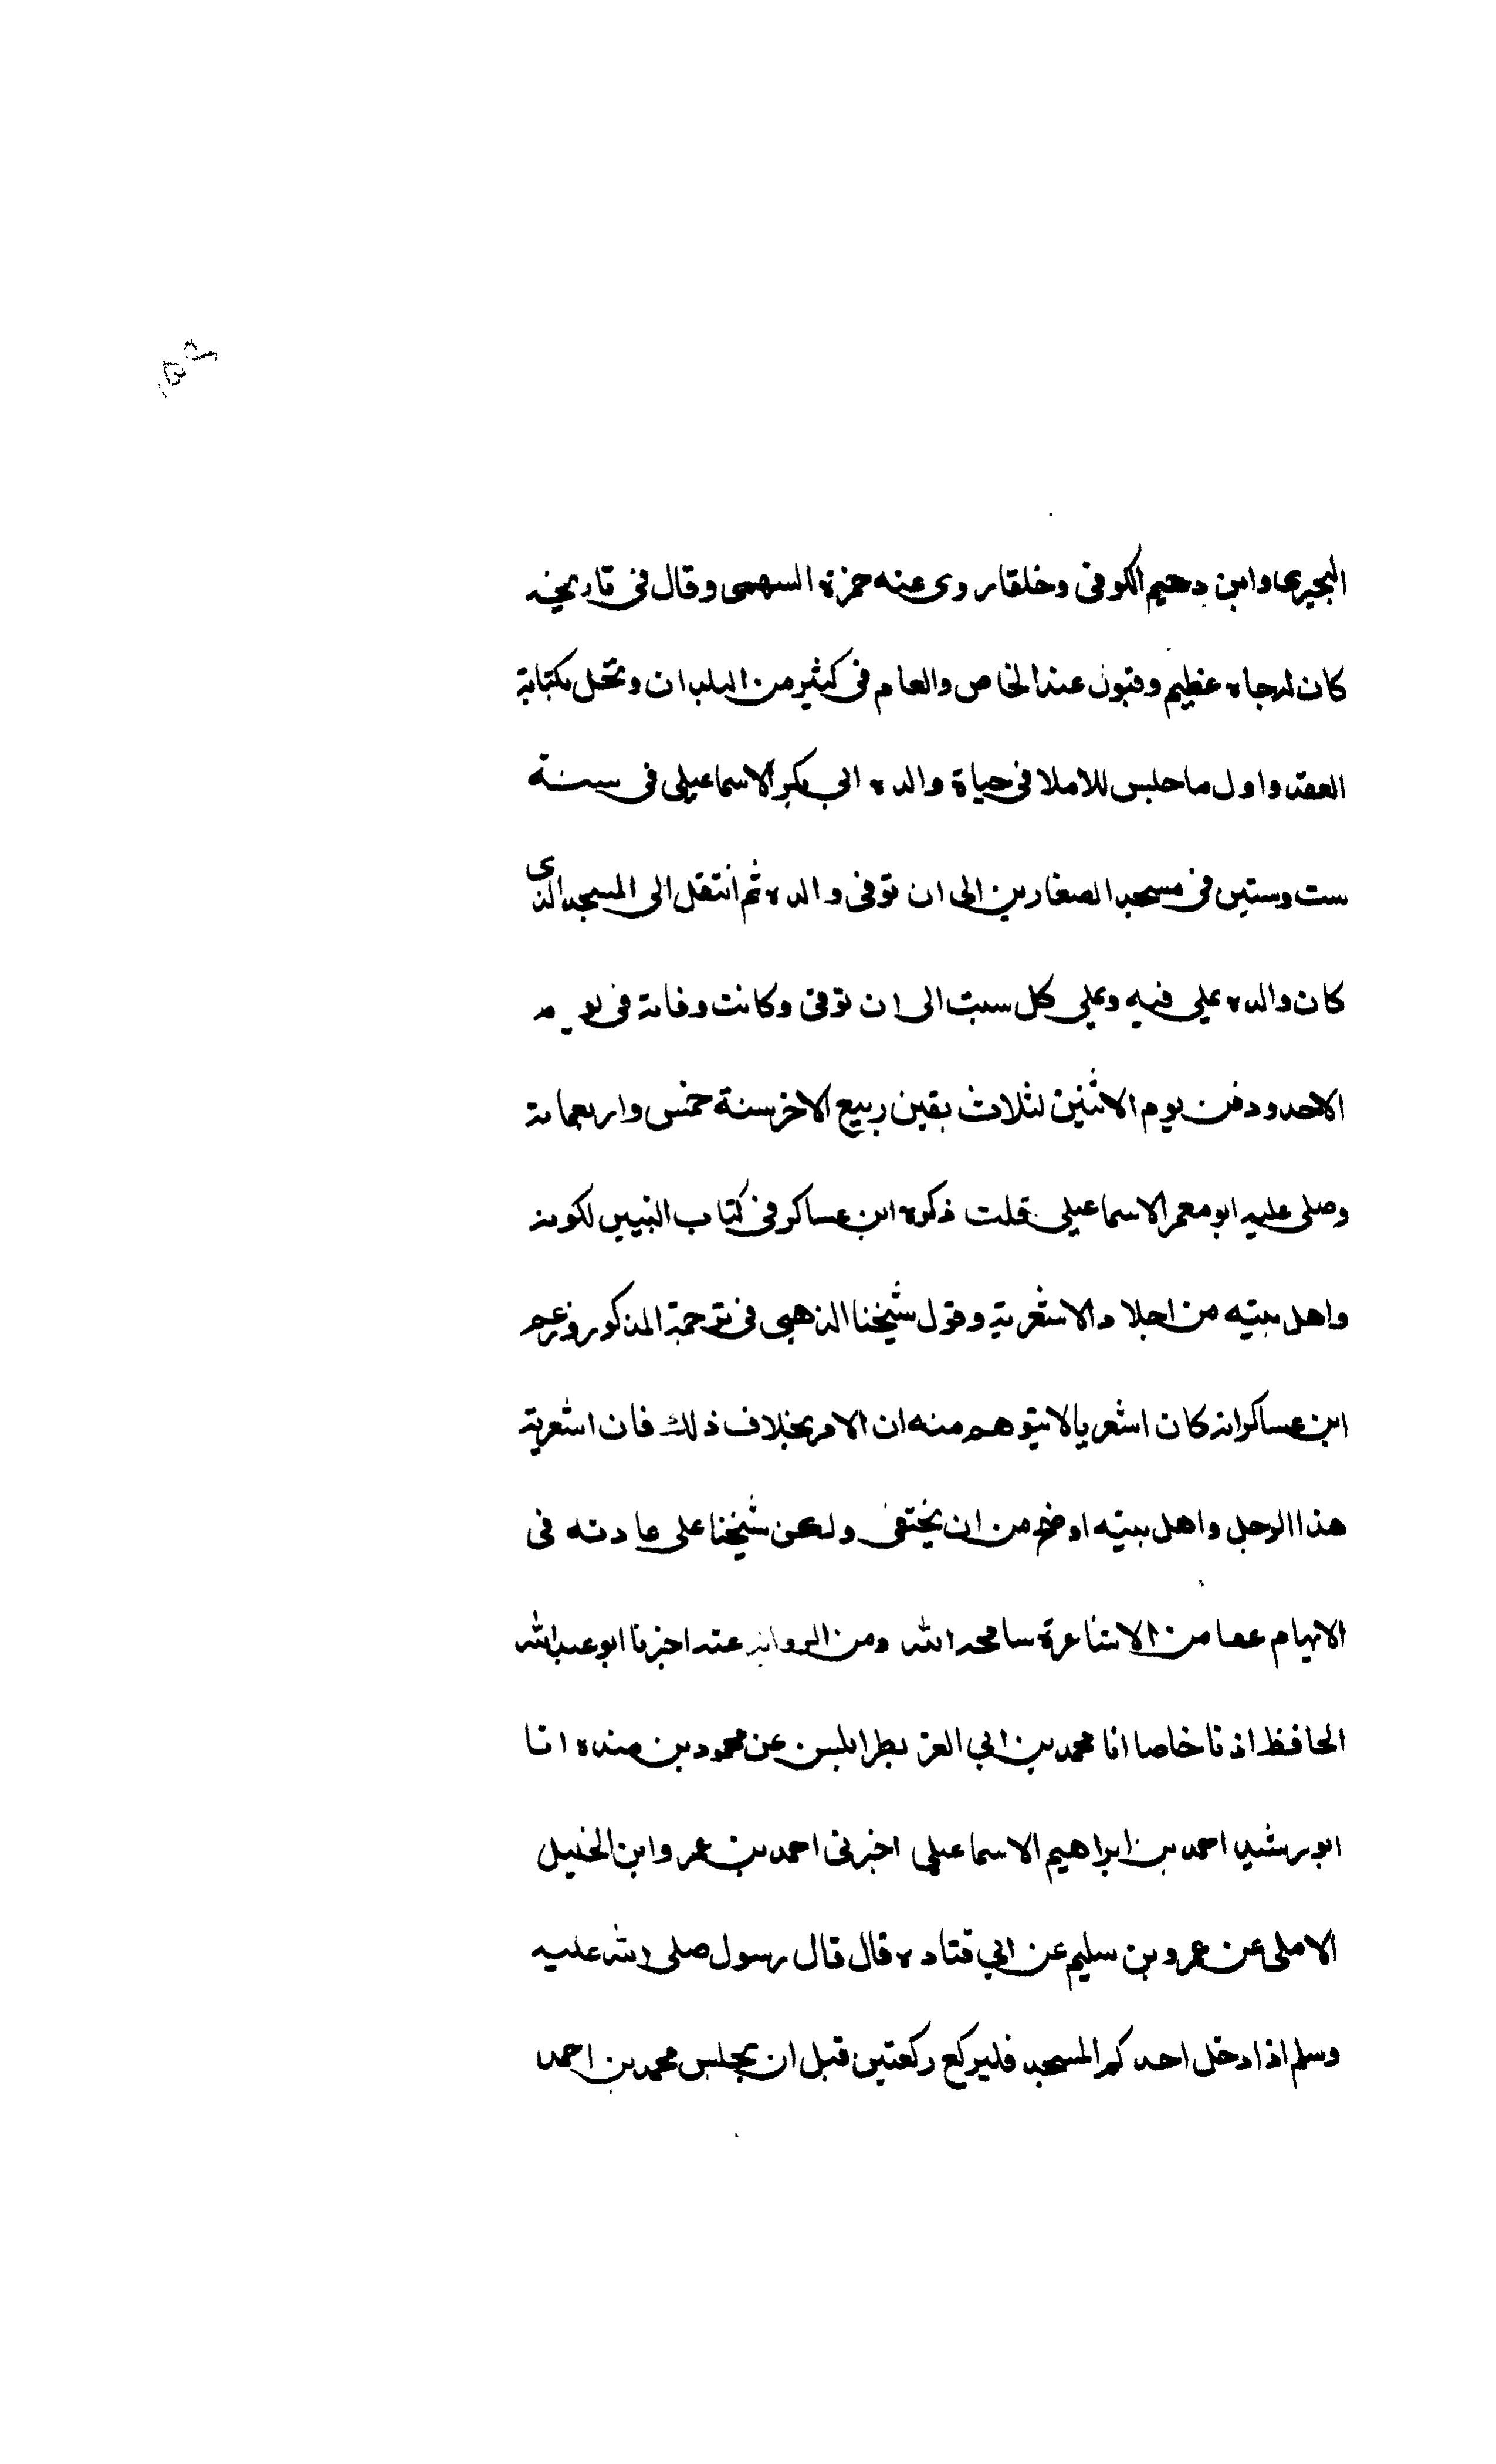 البجيرى وابن دحيم الكوفى وخلقا روى عنه حمزة السهمى وقال فى تاريخه
كان له جاه عظيم وقبول عند الخاص والعام فى كثير من البلدان وتحل بكتابة
العقد واول ما جلس للاملا فى حياة والده ابى بكر الاسماعيلى فى سنة
ست وستين فى مسجد الصفارين الى ان توفى والده ثم انتقل الى المسجد الذى
كان والده يملى فيه ويملى كل سبت الى ان توفى وكانت وفاته فى يوم
الاحد ودفن يوم الاثنين لثلاث بقين ربيع الاخر سنة خمس واربعماية
وصلى عليه ابو معمر الاسماعيلى قلت ذكره ابن عساكر فى كتاب التبيين لكونه
واهل بيته من اجلاء الاشعرية وقول شيخنا الذهبى فى ترجمة المذكور وزعم
ابن عساكر انه كان اشعريا لا يتوهم منه ان الامر بخلاف ذلك فان اشعرية
هذا الرجل واهل بيته اوضح من ان يختفى ولكن شيخنا على عادته فى
الايهام من الاشاعرة سامحه الله ومن الرواية عنه اخبرنا ابو عبد الله
الحافظ اذنا خاصا انا محمد بن ابي العز بطرابلس عن محمود بن منده انا
ابو رشيد احمد بن ابراهيم الاسماعيلى اخبرنى احمد بن عمر وابن الخليل
الاملى عن عمرو بن سليم عن ابي قتاده قال قال رسول صلى الله عليه
وسلم اذا دخل احدكم المسجد فليركع ركعتين قبل ان يجلس محمد بن احمد